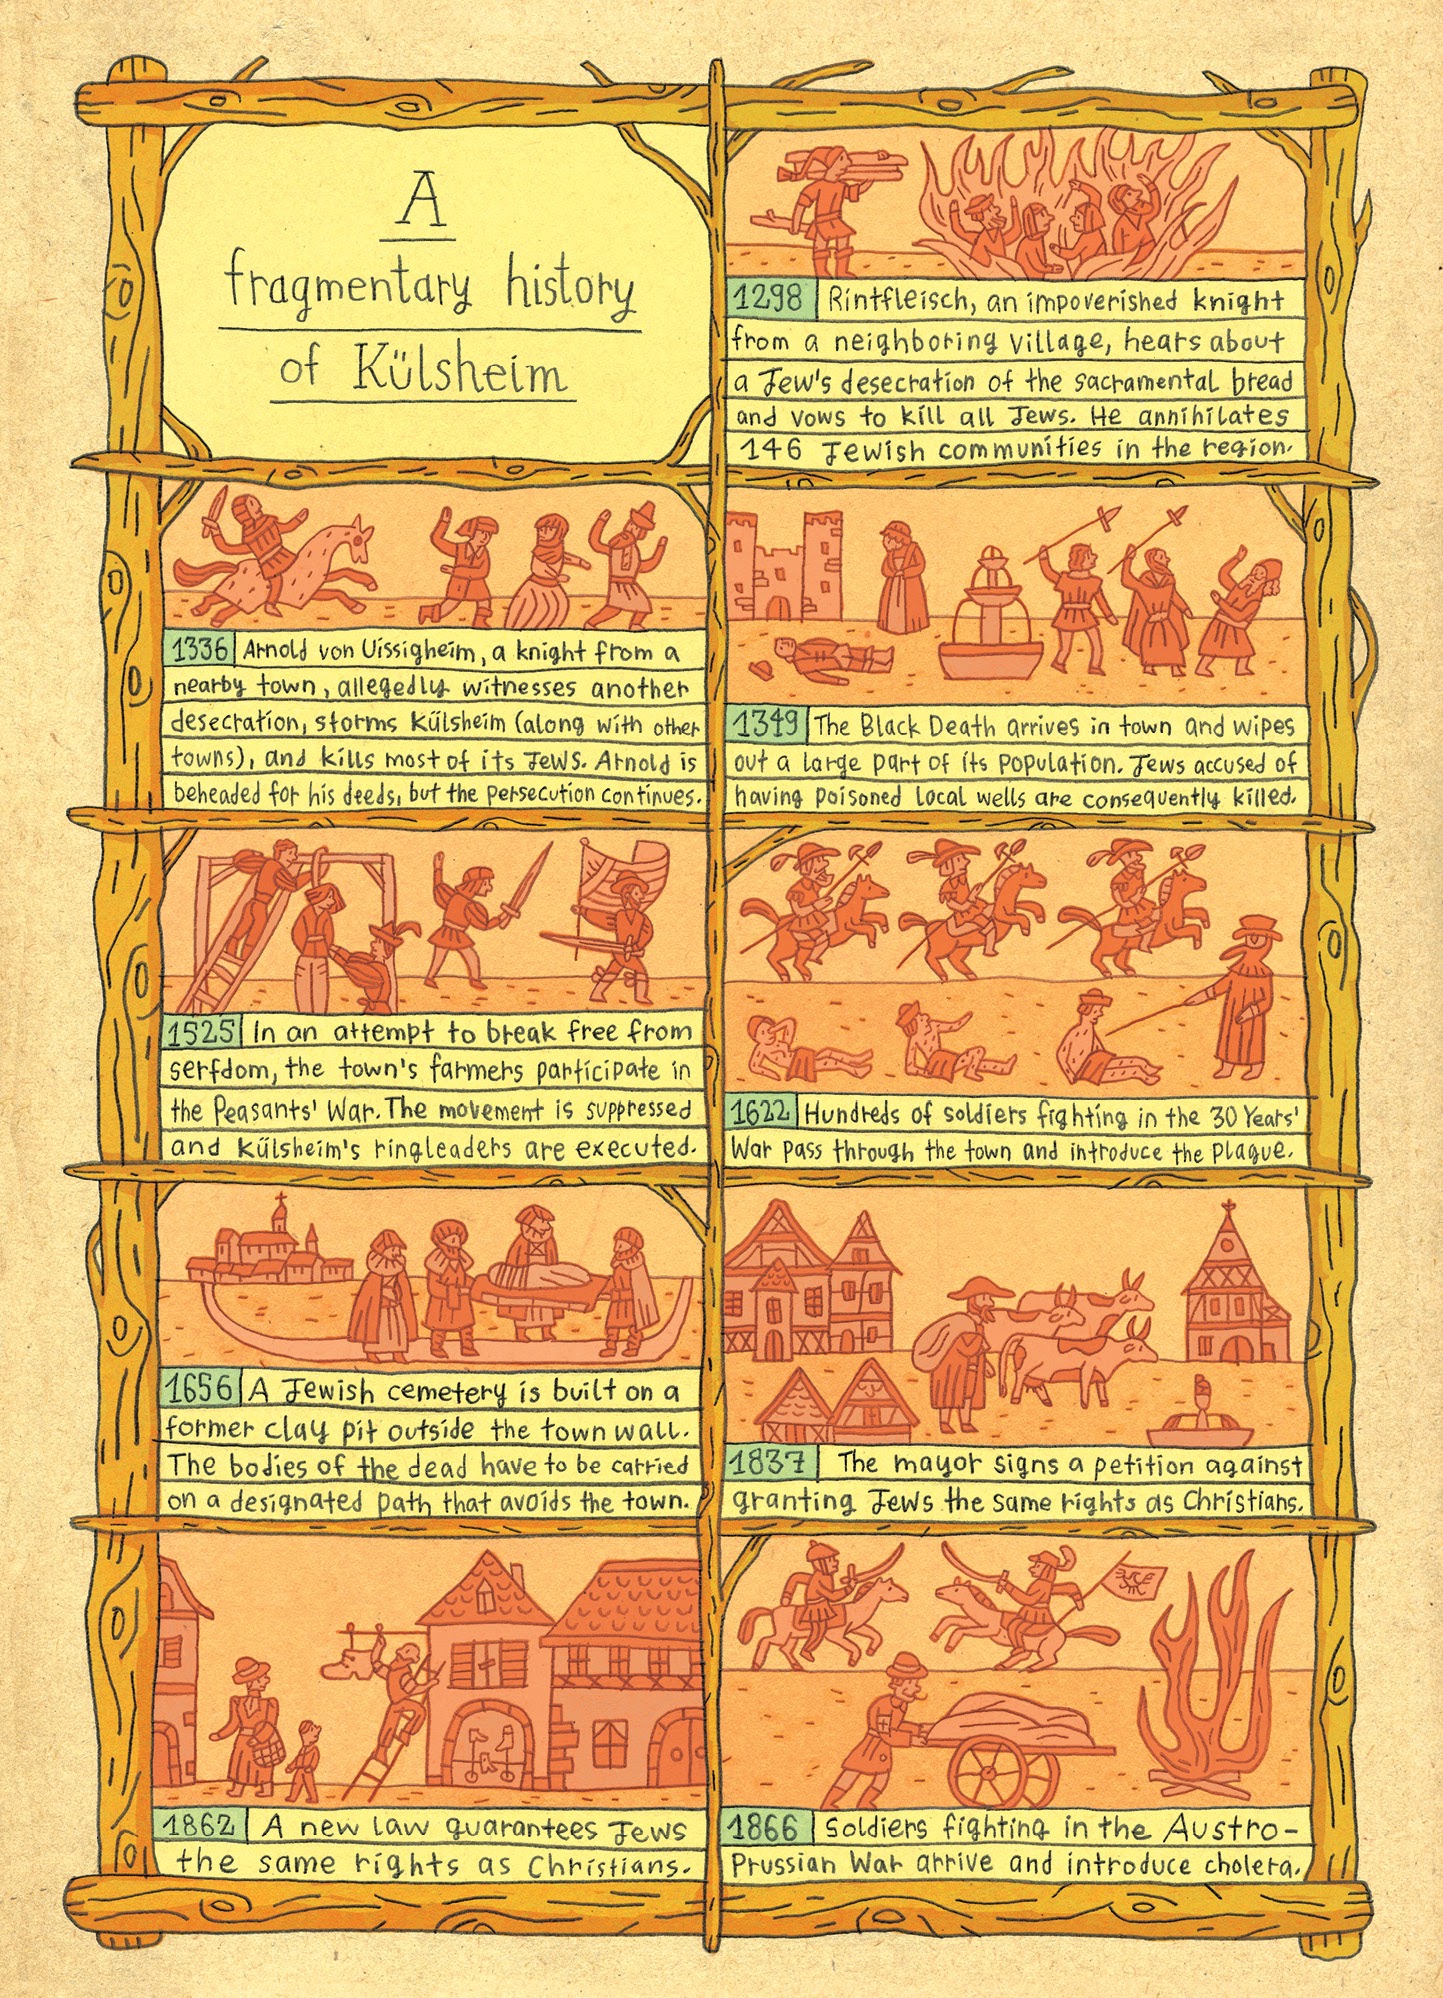 A
fragmentary history
of Külsheim
1298 Rintfleisch, an impoverished knight
from a neighboring village, hears about
a Jew's desecration of the sacramental bread
and vows to kill all Jews. He annihilates
146 Jewish communities in the region.
1336 Arnold von Uissigheim, a knight from a
nearby town, allegedly witnesses another
desecration, storms Külsheim (along with other
towns), and kills most of its Jews. Arnold is
beheaded for his deeds, but the persecution continues.
1349 The Black Death arrives in town and wipes
out a large part of its population. Jews accused of
having poisoned local wells are consequently killed.
1525 In an attempt to break free from
serfdom, the town's farmers participate in
the Peasants' War. The movement is suppressed
and Külsheim's ringleaders are executed.
1622 Hundreds of soldiers fighting in the 30 Years'
War pass through the town and introduce the plague.
1656 A Jewish cemetery is built on a
former clay pit outside the town wall.
The bodies of the dead have to be carried
on a designated path that avoids the town.
1837 The mayor signs a petition against
granting Jews the same rights as Christians.
1862 A new law guarantees Jews
the same rights as Christians.
1866 Soldiers fighting in the Austro-
Prussian War arrive and introduce cholera.